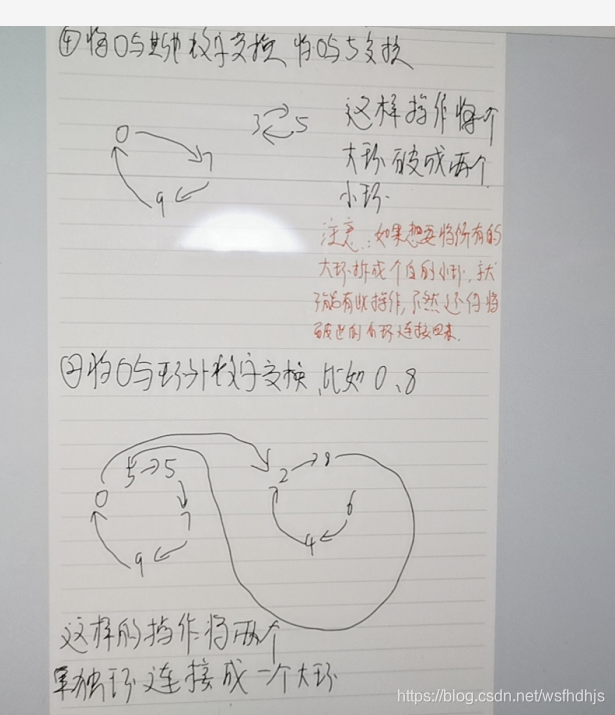 ④将0与其他数字交换 将0与5交换
3 5
0 7
9
这样操作将个
大环破成两个
小环.
注意:如果想要将所有的
大环拆成个自的小环,
有效操作,不然还得将
破出的小环连接回来.
②将0与环外数字交换,比如0、8
0 5 7 9
2 8 6 4
这样的操作将两个
单独环连接成一个大环
https://blog.csdn.net/wsfhdhjs